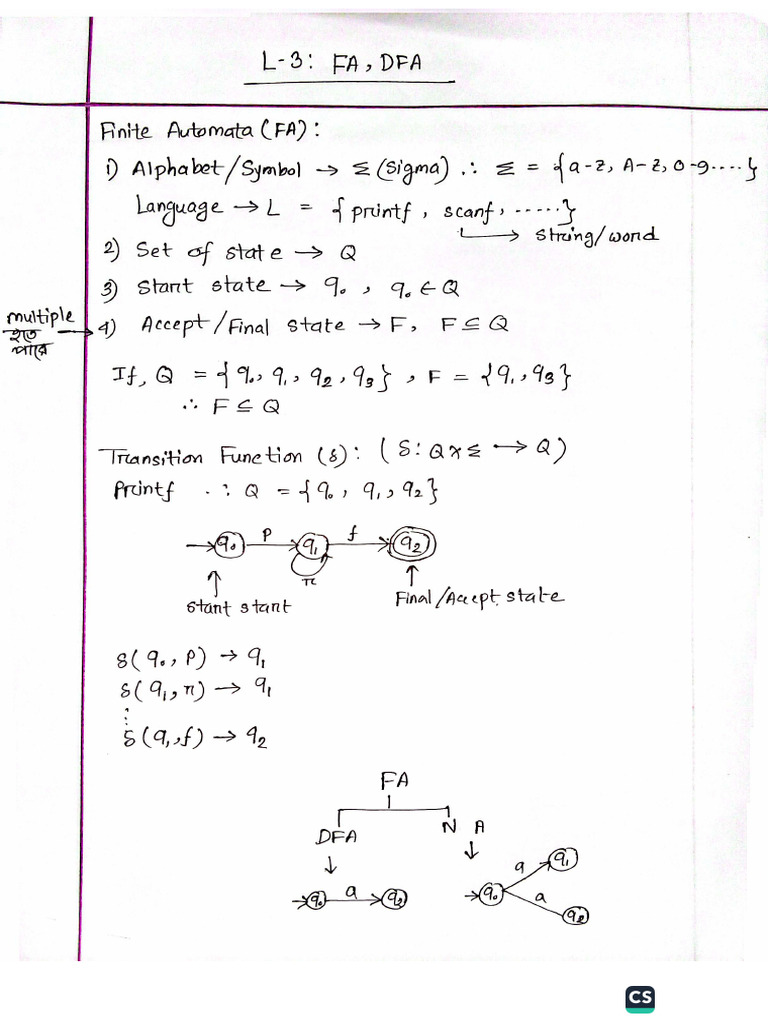 L-3: FA, DFA
Finite Automata (FA):
1) Alphabet/Symbol → Σ (Sigma) ∴ Σ = {a-z, A-Z, 0-9....}
Language → L = {printf, scanf, ......}
→ String/word
2) Set of state → Q
3) Start state → q₀, q₀ ∈ Q
multiple হতে পারে → 4) Accept/Final state → F, F ⊆ Q
If, Q = {q₀, q₁, q₂, q₃}, F = {q₁, q₃}
∴ F ⊆ Q
Transition Function (δ): (δ: Q × Σ → Q)
Printf ∴ Q = {q₀, q₁, q₂}
q₀ P q₁ f q₂
r
Start start Final/Accept state
δ(q₀, P) → q₁
δ(q₁, r) → q₁
⋮
δ(q₁, f) → q₂
FA
DFA N A
q₀ a q₂ q₀ a q₁
a q₂
CS